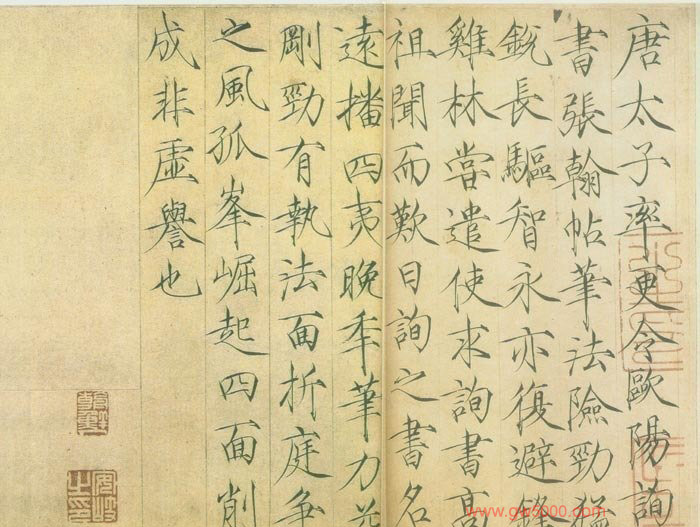 唐太子率更令歐陽詢
書張翰帖筆法險勁猛
銳長驅智永亦復避鋒
雞林嘗遣使求詢書高
祖聞而歎曰詢之書名
遠播四夷晚年筆力益
剛勁有執法面折庭爭
之風孤峯崛起四面削
成非虛譽也
www.gw5000.com